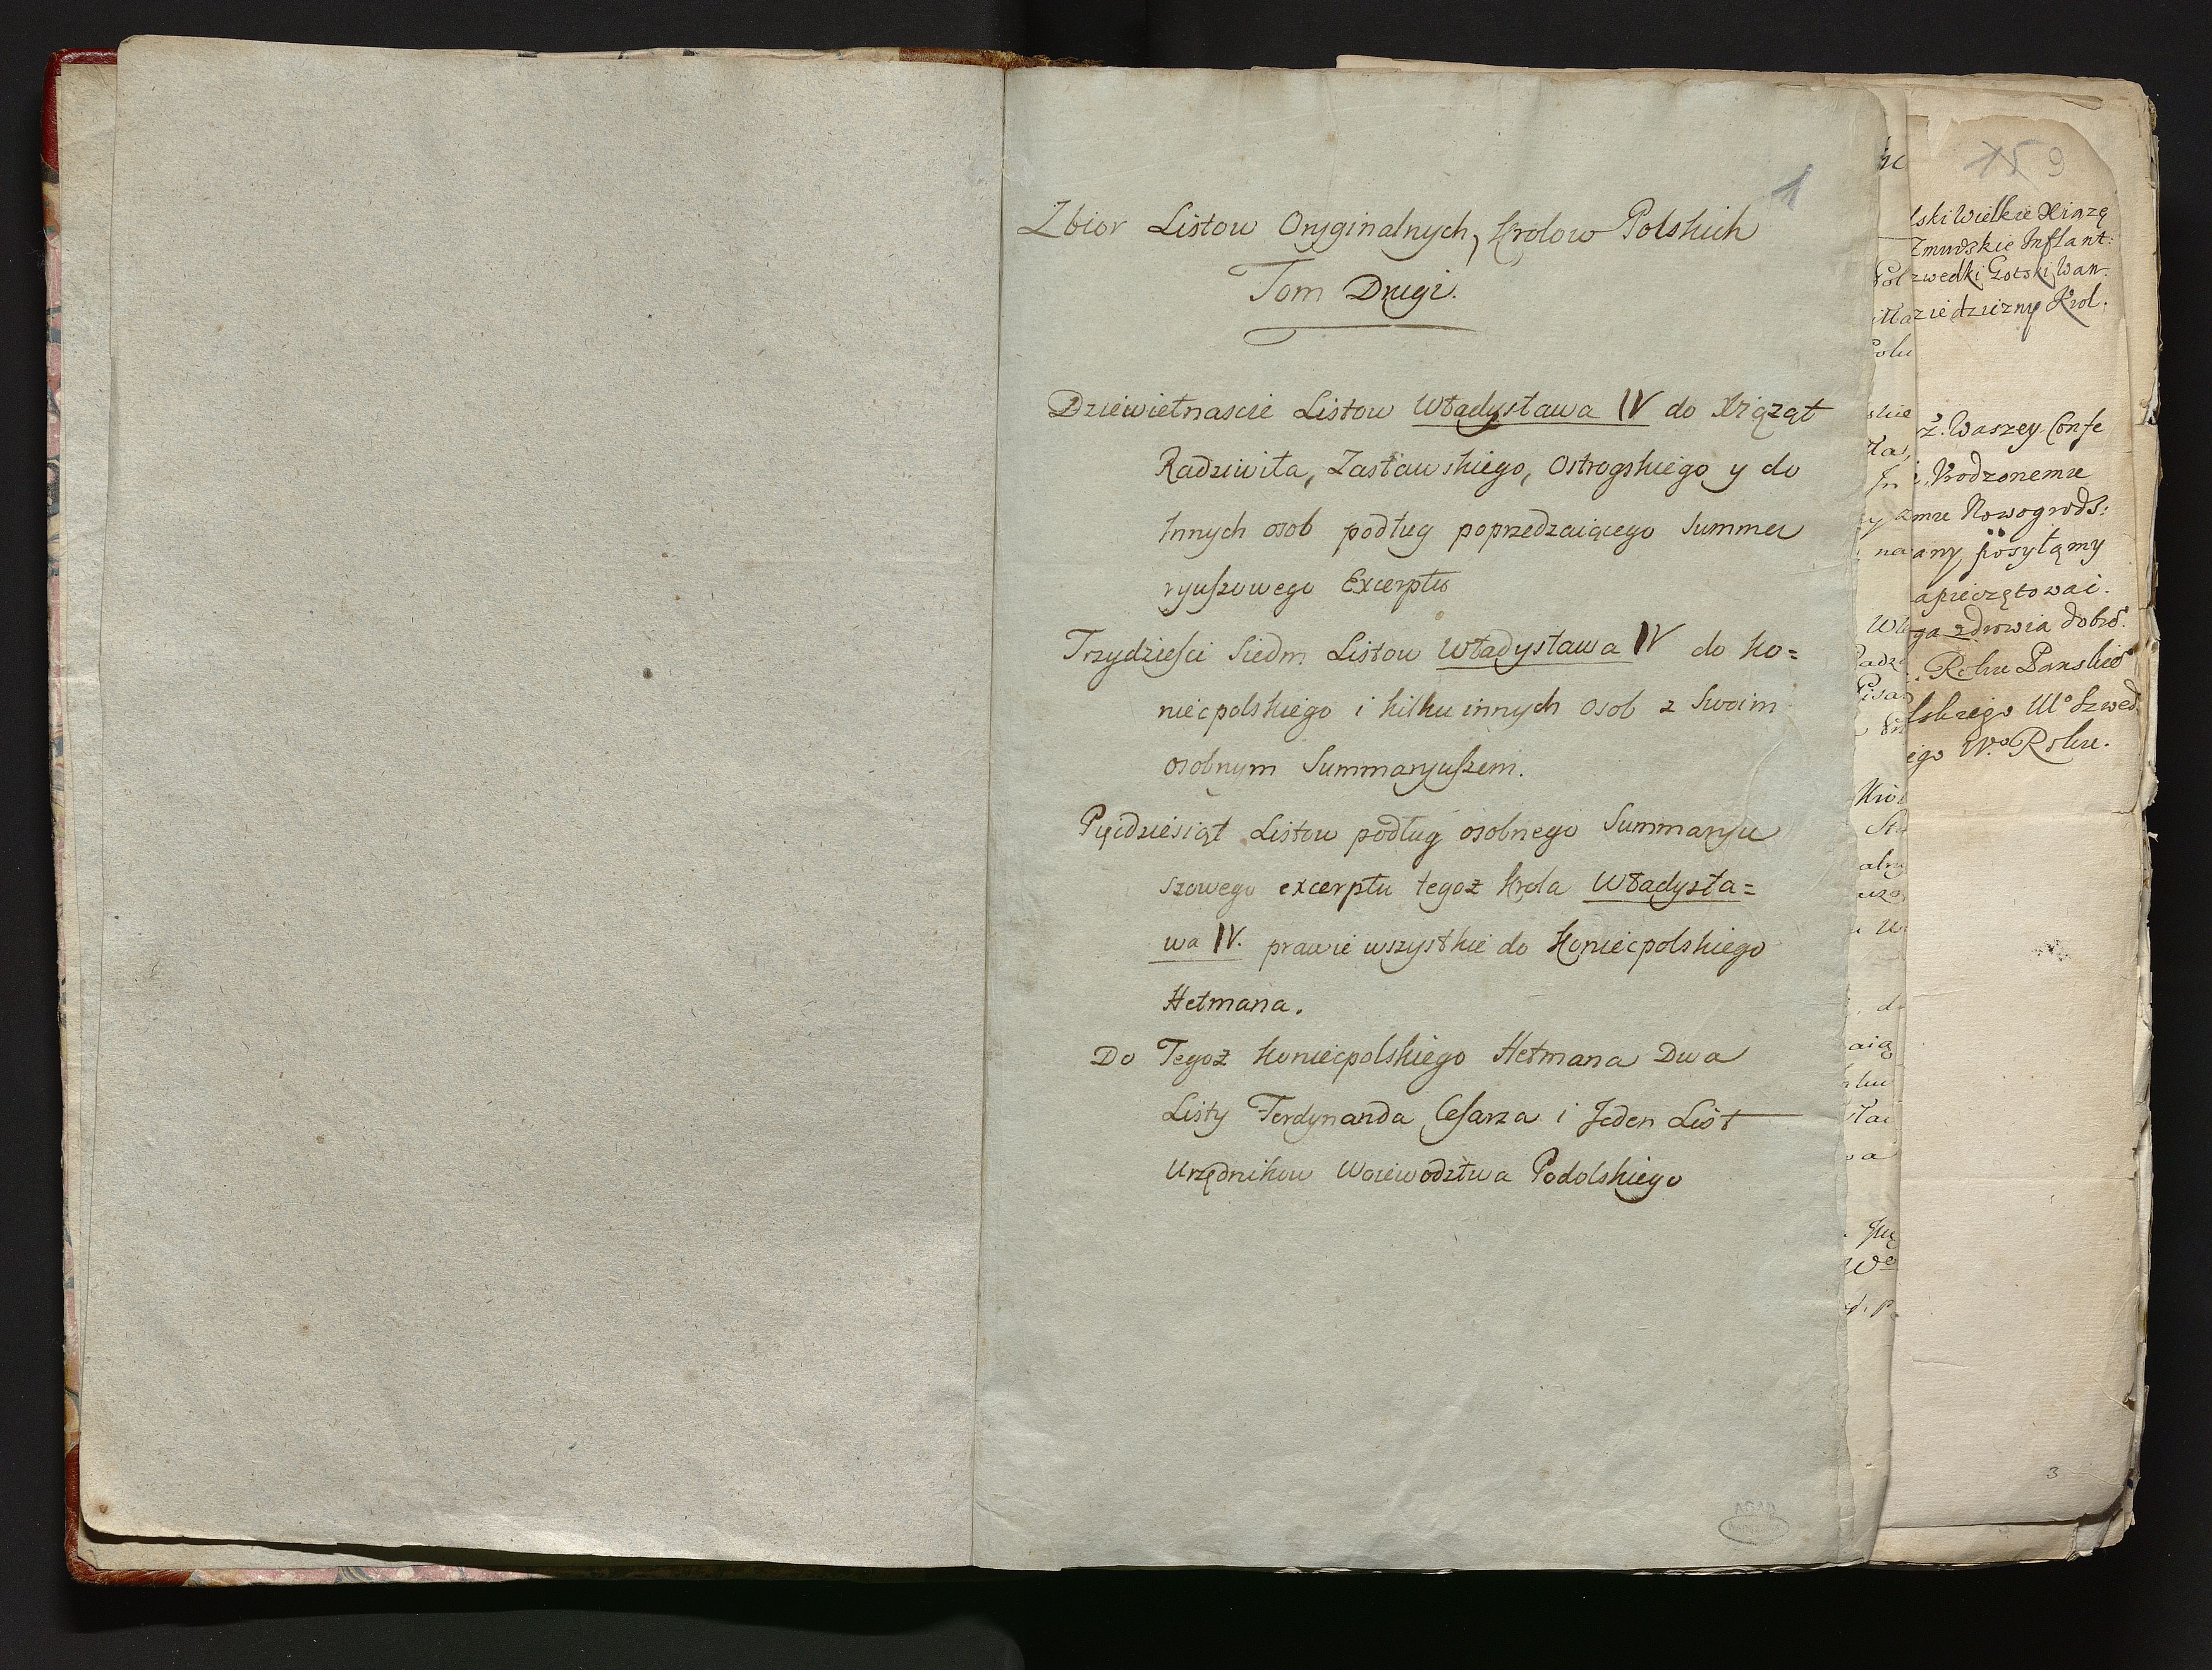 1
Zbior Listow Oryginalnych, Krolow Polskich
Tom Drugi.
Dziewietnascie Listow Władysława IV do Xiążąt
Radziwiła, Zasławskiego, Ostrogskiego y do
Innych osob podług poprzedzaiącego Summa
ryuszowego Excerptu
Trzydzieſci Siedm Listow Władysława IV do Ko=
niecpolskiego i kilku innych osob z Swoim
osobnym Summaryuſzem.
Pięcdziesiąt Listow podług osobnego Summaryu
szowego excerptu tegoż Krola Władysła=
wa IV. prawie wszystkie do Koniecpolskiego
Hetmana.
Do Tegoż Koniecpolskiego Hetmana Dwa
Listy Ferdynanda Ceſarza i Jeden List
Urzędnikow Woiewodztwa Podolskiego
AGAD
159
lski Wielkie Xiązę
Zmudzkie Inflant:
zwedki Gotski Wan.
ziedzizny Krol.
ż. Waszey Conſe
Vrodzonemu
mu Nowogrods:
any posyłąmy
apieczętowai.
ga zdrowia dobrö.
Roku Panskie
lskiego IIIº Szwed.
ego IV.º Roku.
3